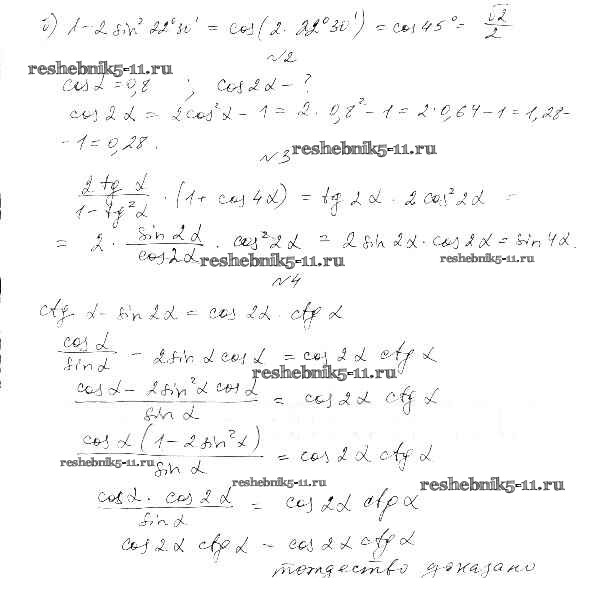 б) 1 - 2 sin² 22°30' = cos(2 · 22°30') = cos 45° = √2/2
№2
reshebnik5-11.ru
cos α = 0,8 ; cos 2α - ?
cos 2α = 2cos²α - 1 = 2 · 0,8² - 1 = 2 · 0,64 - 1 = 1,28 -
- 1 = 0,28.
№3 reshebnik5-11.ru
2 tg α / 1 - tg²α · (1 + cos 4α) = tg 2α · 2 cos² 2α =
= 2 · sin 2α / cos 2α · cos² 2α = 2 sin 2α · cos 2α = sin 4α.
reshebnik5-11.ru reshebnik5-11.ru
№4
ctg α - sin 2α = cos 2α · ctg α
cos α / sin α - 2 sin α cos α = cos 2α ctg α
reshebnik5-11.ru
cos α - 2 sin²α cos α / sin α = cos 2α ctg α
cos α (1 - 2 sin²α) / sin α = cos 2α ctg α
reshebnik5-11.ru
reshebnik5-11.ru reshebnik5-11.ru
cos α · cos 2α / sin α = cos 2α ctg α
cos 2α ctg α - cos 2α ctg α
тождество доказано